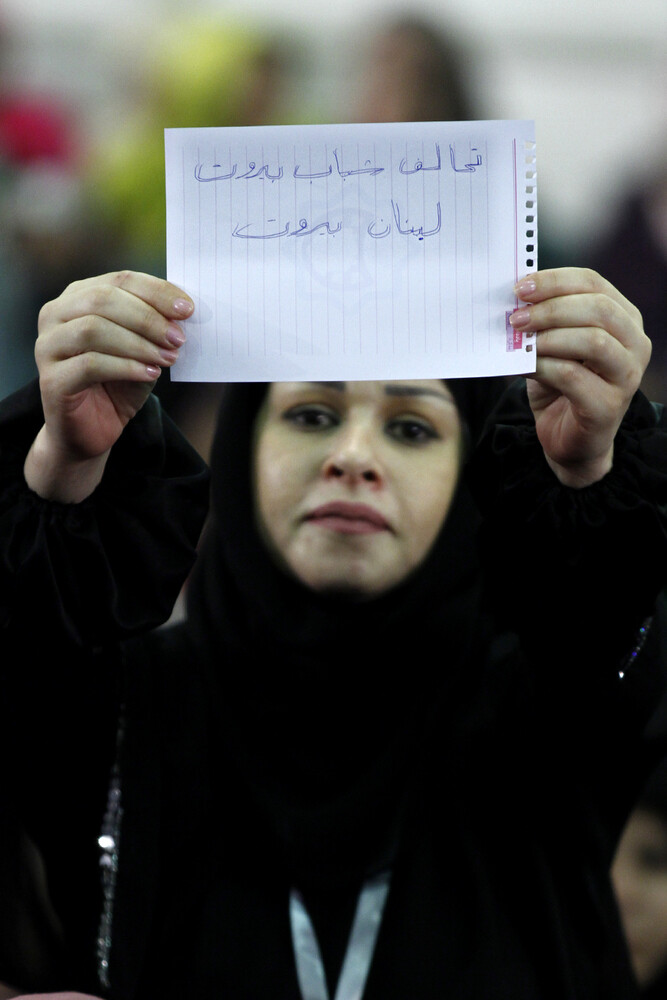 تحالف شباب بيروت
لبنان بيروت